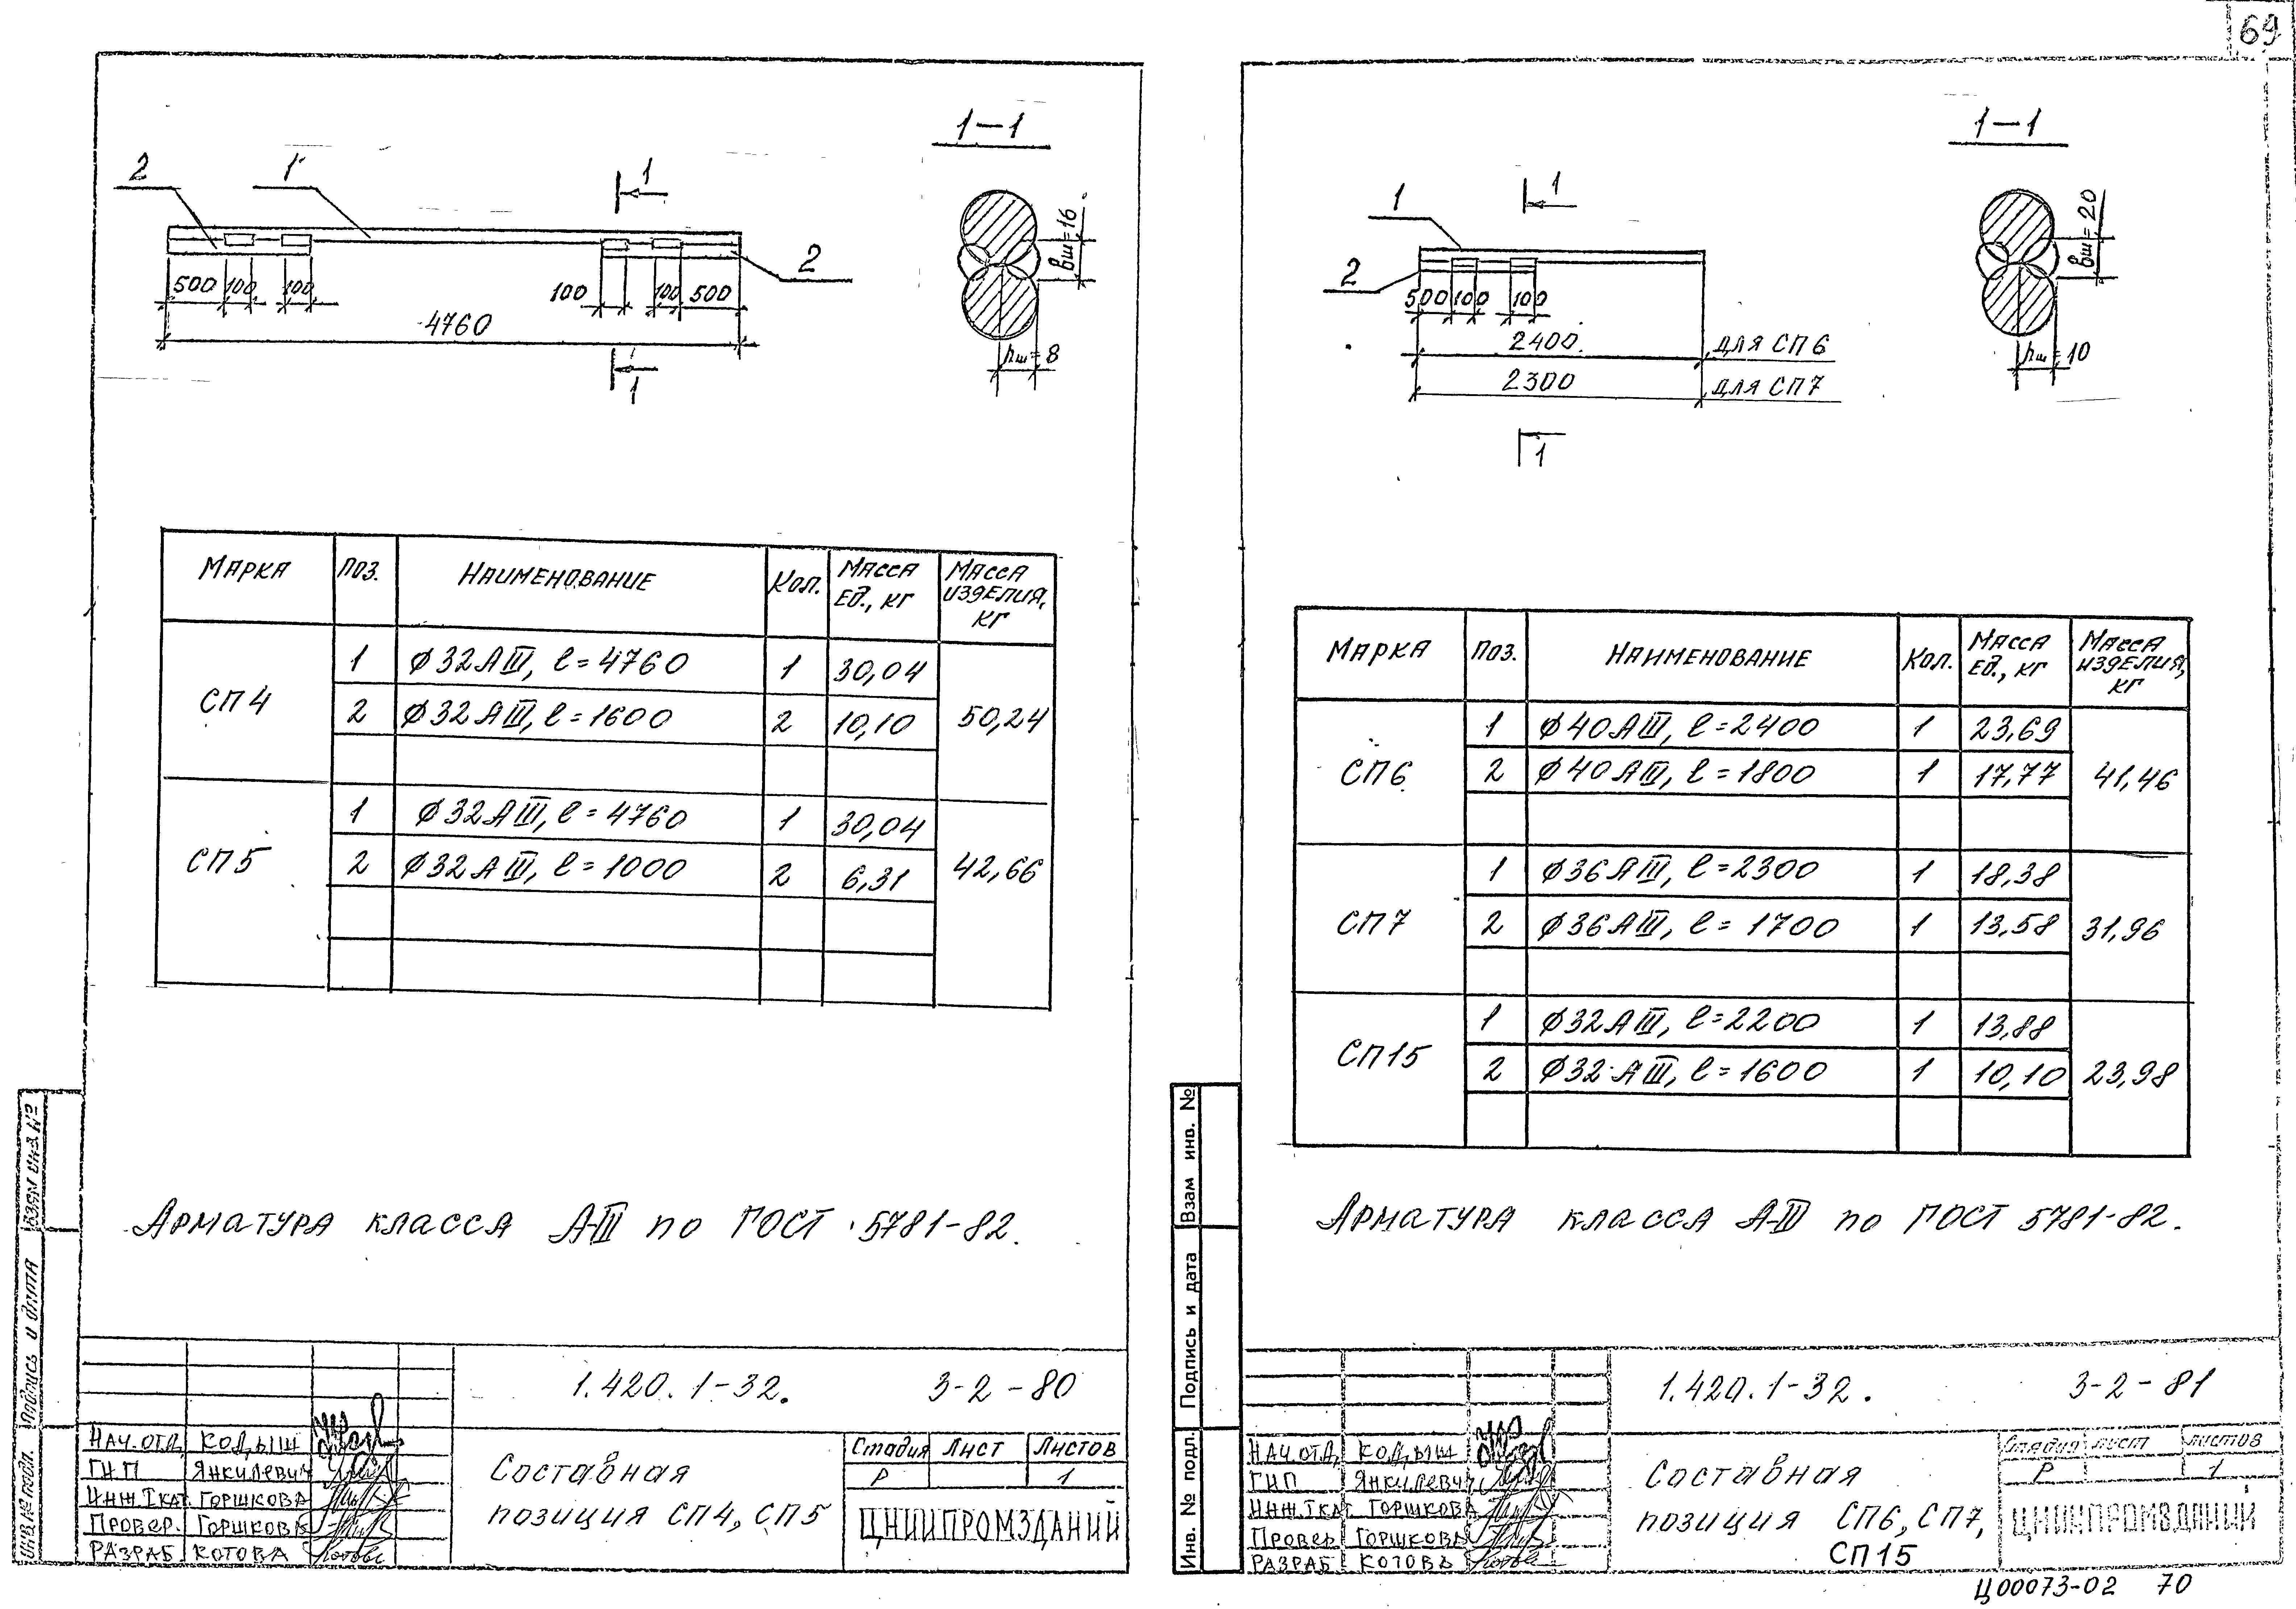 69
1-1
2
1
1
2
500 100 100 100 100 500
4760
1
bш=16
hш=8
Марка Поз. Наименование Кол. Масса ед., кг Масса изделия, кг
СП4
1 ∅32АIII, ℓ=4760 1 30,04
2 ∅32АIII, ℓ=1600 2 10,10
50,24
СП5
1 ∅32АIII, ℓ=4760 1 30,04
2 ∅32АIII, ℓ=1000 2 6,31
42,66
Арматура класса А-III по ГОСТ 5781-82.
1.420.1-32. 3-2-80
Нач.отд. Кодыш
ГИП Янкилевич
Инж.Iкат. Горшкова
Провер. Горшкова
Разраб Котова
Составная
позиция СП4, СП5
Стадия Лист Листов
Р 1
ЦНИИПРОМЗДАНИЙ
Инв.№ подл. Подпись и дата Взам инв №
1-1
1
1
2
500 100 100
2400 для СП6
2300 для СП7
1
bш=20
hш=10
Марка Поз. Наименование Кол. Масса ед., кг Масса изделия, кг
СП6
1 ∅40АIII, ℓ=2400 1 23,69
2 ∅40АIII, ℓ=1800 1 17,77
41,46
СП7
1 ∅36АIII, ℓ=2300 1 18,38
2 ∅36АIII, ℓ=1700 1 13,58
31,96
СП15
1 ∅32АIII, ℓ=2200 1 13,88
2 ∅32АIII, ℓ=1600 1 10,10
23,98
Арматура класса А-III по ГОСТ 5781-82.
1.420.1-32. 3-2-81
Нач.отд. Кодыш
ГИП Янкилевич
Инж.Iкат. Горшкова
Провер Горшкова
Разраб Котова
Составная
позиция СП6, СП7,
СП15
Стадия Лист Листов
Р 1
ЦНИИПРОМЗДАНИЙ
Инв. № подл. Подпись и дата Взам инв. №
Ц00073-02 70